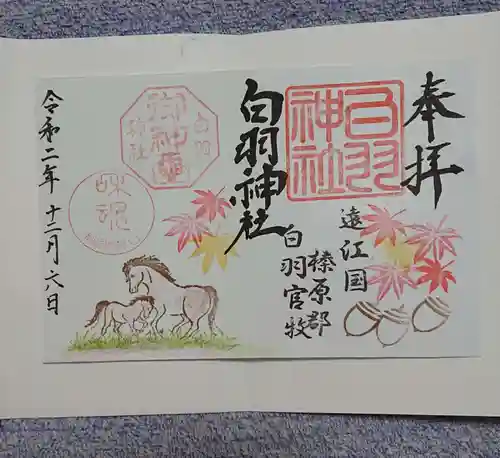 奉拝
白羽神社
遠江国
榛原郡
白羽官牧
白羽神社
白羽神社
御神璽
令和二年十二月六日